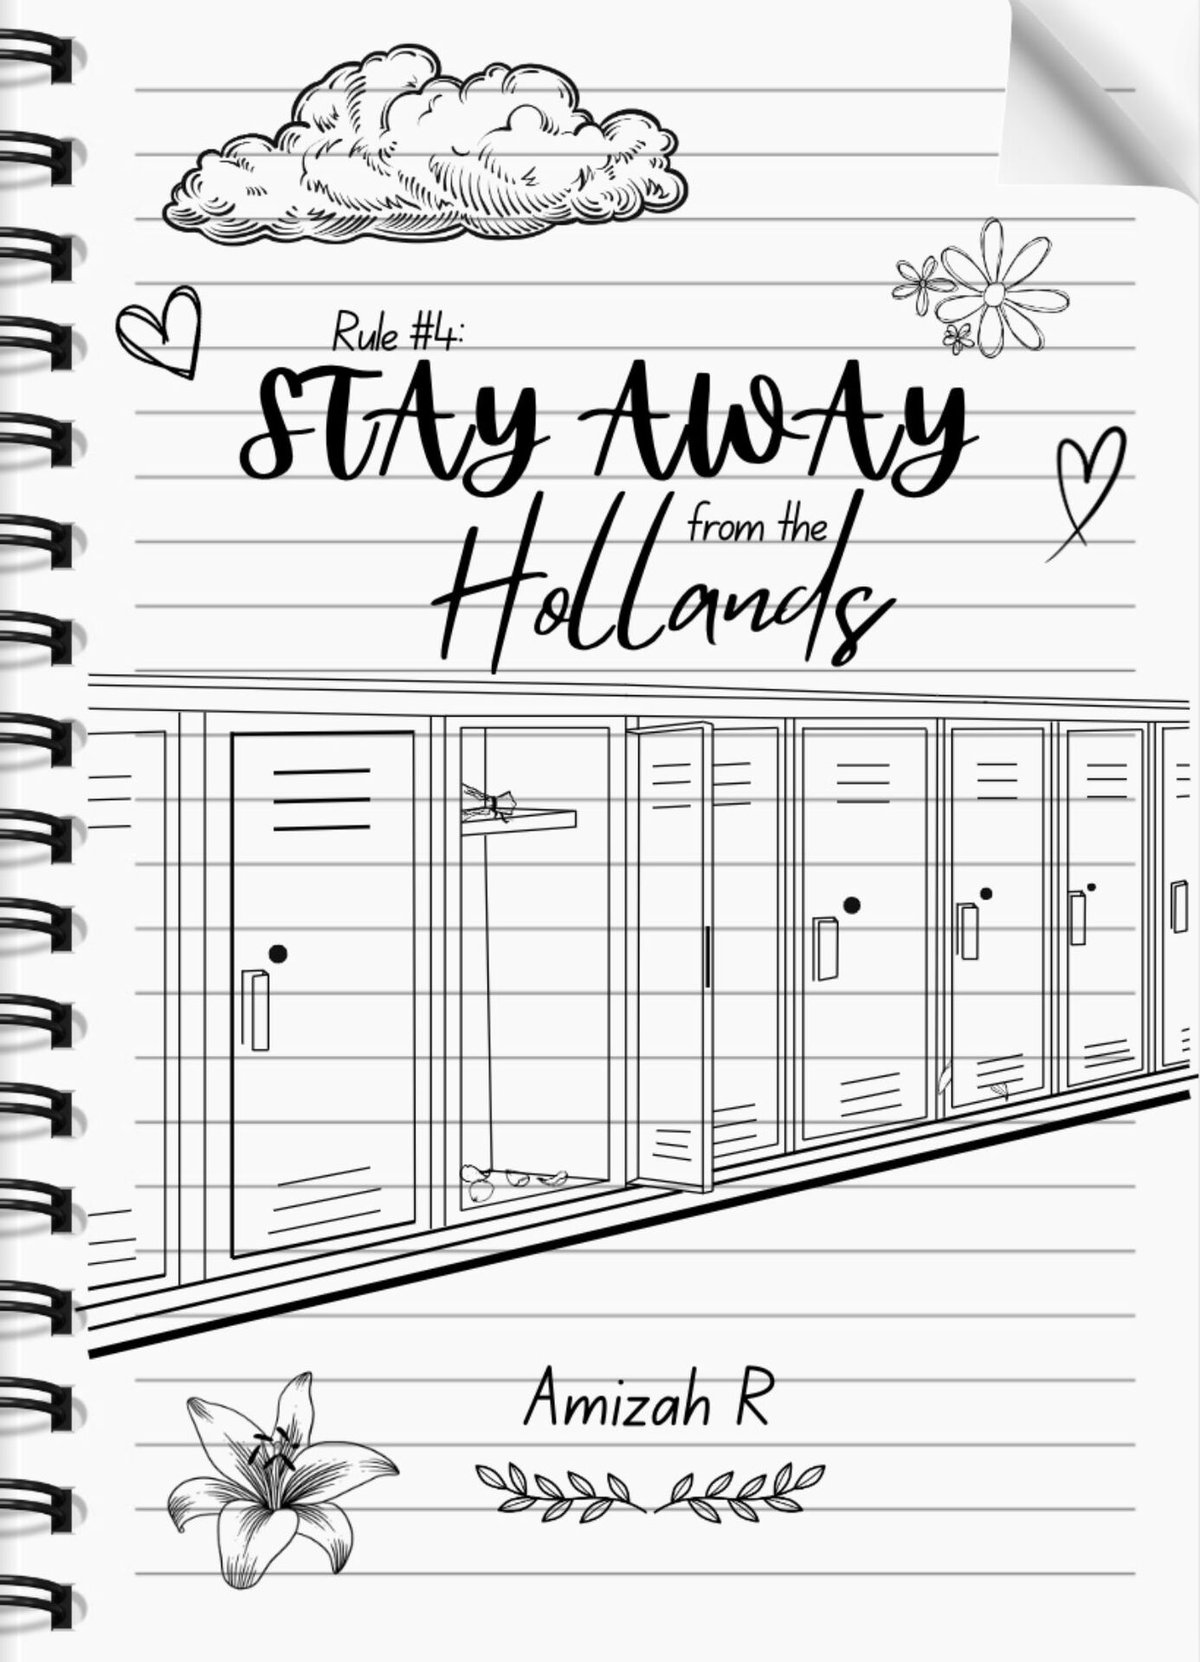 Rule #4:
STAY AWAY
from the
Hollands
Amizah R